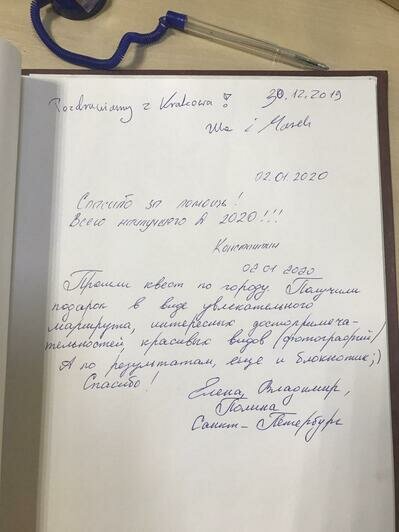 Pozdrawiamy z Krakowa!
30.12.2019
Ula i Marek
02.01.2020
Спасибо за помощь!
Всего наилучшего в 2020!!!
Константин
02.01 2020
Прошли квест по городу. Получили
подарок в виде увлекательного
маршрута, интересных достопримеча-
тельностей красивых видов (фотографий)
А по результатам, еще и блокнотик;)
Спасибо!
Елена, Владимир,
Полина
Санкт-Петербург